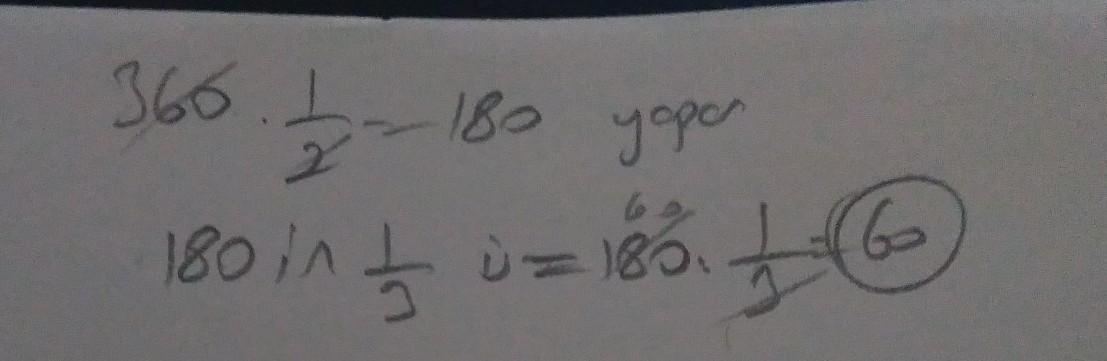 360 . 1/2 = 180 yapar
180 in 1/3 ü = 180 . 1/3 = 60